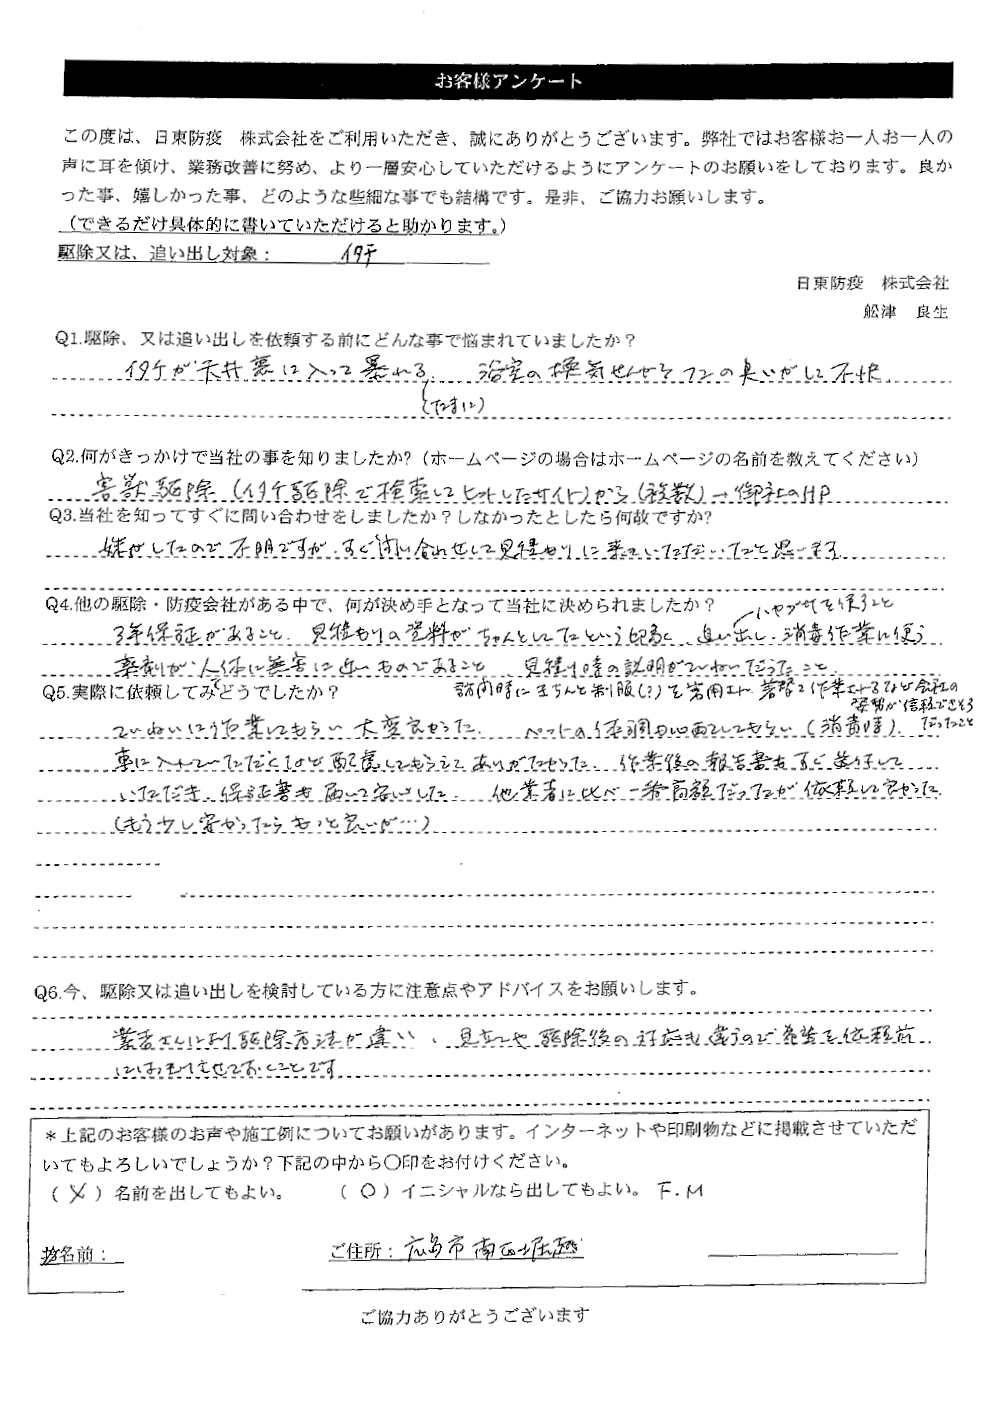 お客様アンケート
この度は、日東防疫 株式会社をご利用いただき、誠にありがとうございます。弊社ではお客様お一人お一人の
声に耳を傾け、業務改善に努め、より一層安心していただけるようにアンケートのお願いをしております。良か
った事、嬉しかった事、どのような些細な事でも結構です。是非、ご協力お願いします。
（できるだけ具体的に書いていただけると助かります。）
駆除又は、追い出し対象： イタチ
日東防疫 株式会社
舩津 良生
Q1.駆除、又は追い出しを依頼する前にどんな事で悩まれていましたか？
イタチが天井裏に入って暴れる、 浴室の換気せんからフンの臭いがして不快、
（たまに）
Q2.何がきっかけで当社の事を知りましたか?（ホームページの場合はホームページの名前を教えてください）
害獣駆除（イタチ駆除で検索してヒットしたサイト）から（複数）→御社のHP
Q3.当社を知ってすぐに問い合わせをしましたか？しなかったとしたら何故ですか?
嫁がしたので不明ですが、すぐ問い合わせして見積もりに来ていただいたと思います
Q4.他の駆除・防疫会社がある中で、何が決め手となって当社に決められましたか？
ハヤブサを使うこと
3年保証があること、見積もりの資料がちゃんとしてたという印象、追い出し、消毒作業に使う
薬剤が人体に無害に近いものであること 見積り時の説明がていねいだったこと、
訪問時にきちんと制服(?)を着用され、着替え作業されるなど会社の
姿勢が信頼できそう
だったこと
Q5.実際に依頼してみてどうでしたか？
ていねいに作業してもらい大変良かった、 ペットの体調も心配してもらい（消毒時）、
車に入れていただくなど配慮してもらえてありがたかった、作業後の報告書もすぐ送付して
いただき、保証書も届いて安心した、 他業者に比べ一番高額だったが依頼して良かった
（もう少し安かったらもっと良いが…）
Q6.今、駆除又は追い出しを検討している方に注意点やアドバイスをお願いします。
業者さんにより駆除方法が違い、見立てや駆除後の対応も違うので希望を依頼前
にはっきりさせておくことです
＊上記のお客様のお声や施工例についてお願いがあります。インターネットや印刷物などに掲載させていただ
いてもよろしいでしょうか？下記の中から〇印をお付けください。
（ × ）名前を出してもよい。 （ ○ ）イニシャルなら出してもよい。 F.M
お名前： ご住所：広島市南区堀越
ご協力ありがとうございます